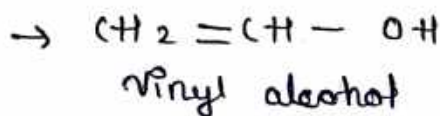 → CH2 = CH - OH
Vinyl alcohol